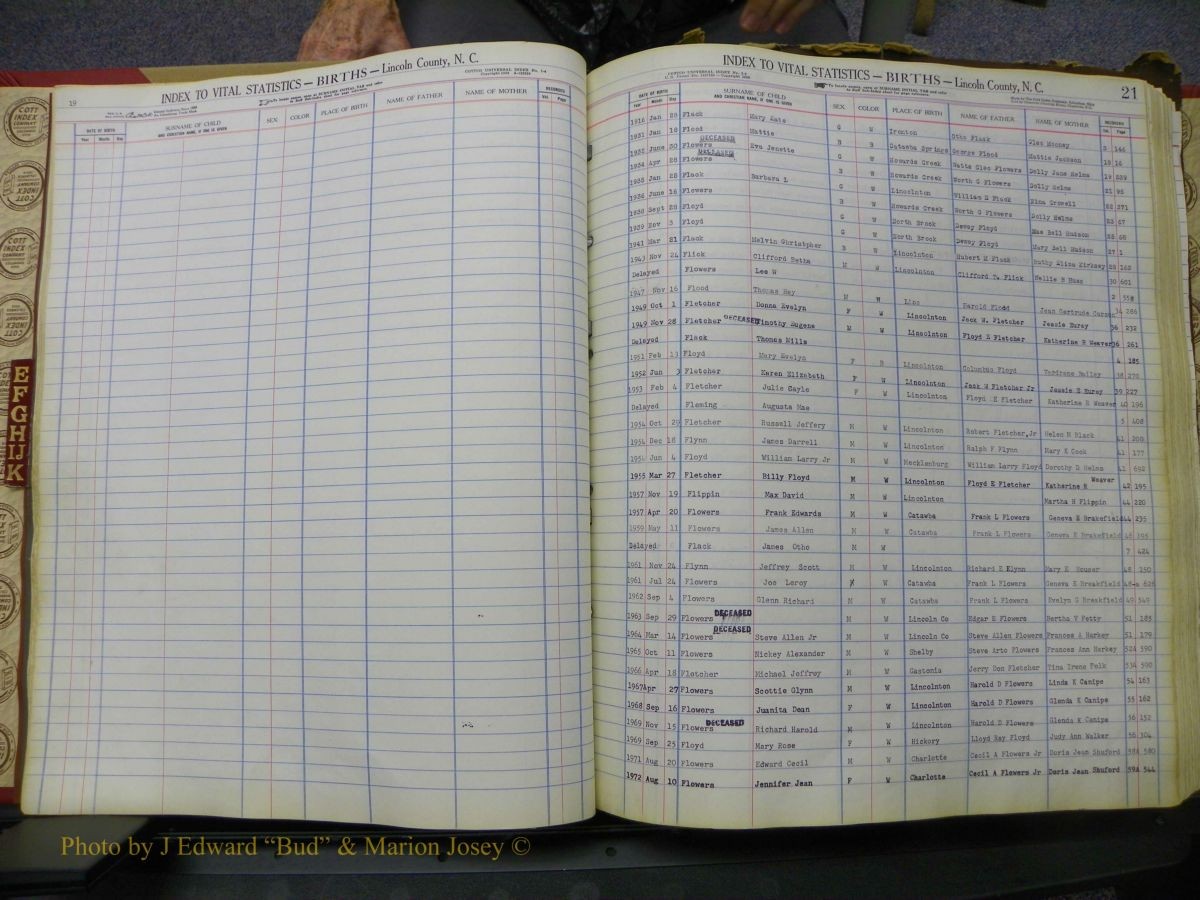 INDEX TO VITAL STATISTICS — BIRTHS — Lincoln County, N. C.
19
COTT
INDEX
COMPANY
DATE OF BIRTH
Year Month Day
SURNAME OF CHILD
AND CHRISTIAN NAME, IF ONE IS GIVEN
SEX
COLOR
PLACE OF BIRTH
NAME OF FATHER
NAME OF MOTHER
RECORDED
Vol. Page
E
F
G
H
IJ
K
INDEX TO VITAL STATISTICS — BIRTHS — Lincoln County, N. C.
21
DATE OF BIRTH
Year Month Day
SURNAME OF CHILD
AND CHRISTIAN NAME, IF ONE IS GIVEN
SEX
COLOR
PLACE OF BIRTH
NAME OF FATHER
NAME OF MOTHER
RECORDED
Vol. Page
1916 Jan Flack Mary Kate G W Irenton Otho Flack Cleo Mooney 3 146
1931 Jan 18 Flood Mattie B B Catawba Springs George Flood Mattie Jackson 18 16
1932 June 30 Flowers DECEASED Eva Jenette G W Howards Creek Watts Cleo Flowers Dolly Jane Helms 19 239
1934 Apr 28 Flowers DECEASED B W Howards Creek Worth G Flowers Dolly Helms 21 95
1935 Jan 28 Flack Barbara L G W Lincolnton William E Flack Rina Crowell 22 271
1936 June 16 Flowers B W Howards Creek Worth G Flowers Dolly Helms 23 67
1938 Sept 28 Floyd G W North Brook Dewey Floyd Mae Bell Hudson 25 68
1939 Nov 3 Floyd G W North Brook Dewey Floyd Mary Bell Hudson 27 1
1941 Mar 21 Flack Melvin Christpher B W Lincolnton Hubert M Flack Ruthy Aline Kirksey 28 162
1943 Nov 24 Flick Clifford Betha M W Lincolnton Clifford T. Flick Nellie B Huss 30 601
Delayed Flowers Lee W 2 558
1947 Nov 16 Flood Thomas Ray M W Linc Harold Flodd Jean Gertrude 34 286
1949 Oct 1 Fletcher Donna Evelyn F W Lincolnton Jack W. Fletcher Jessie Eurey 36 232
1949 Nov 28 Fletcher DECEASED Timothy Eugene M W Lincolnton Floyd E Fletcher Katherine R Weaver 36 261
Delayed Flack Thomas Mills 4 185
1951 Feb 13 Floyd Mary Evelyn F B Lincolnton Columbus Floyd Verdrene Bailey 38 278
1952 Jun 3 Fletcher Karen Elizabeth F W Lincolnton Jack W Fletcher Jr Jessie E Eurey 39 227
1953 Feb 4 Fletcher Julie Gayle F W Lincolnton Floyd E Fletcher Katherine R Weaver 40 196
Delayed Fleming Augusta Mae 5 408
1954 Oct 29 Fletcher Russell Jeffery M W Lincolnton Robert Fletcher, Jr Helen M Black 41 208
1954 Dec 18 Flynn James Darrell M W Lincolnton Ralph F Flynn Mary K Cook 41 177
1954 Jun 4 Floyd William Larry Jr M W Mecklenburg William Larry Floyd Dorothy D Helms 41 692
1955 Mar 27 Fletcher Billy Floyd M W Lincolnton Floyd E Fletcher Katherine R Weaver 42 195
1957 Nov 19 Flippin Max David M W Lincolnton Martha H Flippin 44 220
1957 Apr 20 Flowers Frank Edwards M W Catawba Frank L Flowers Geneva E Brakefield 44 235
1959 May 11 Flowers James Allen M W Catawba Frank L Flowers Geneva E Brakefield 46 195
Delayed Flack James Otho M W 7 424
1961 Nov 24 Flynn Jeffrey Scott M W Lincolnton Richard E Flynn Mary E Houser 48 150
1961 Jul 24 Flowers Joe Leroy M W Catawba Frank L Flowers Geneva E Breakfield 48-a 626
1962 Sep 4 Flowers Glenn Richard M W Catawba Frank L Flowers Evelyn G Breakfield 49 549
1963 Sep 29 Flowers DECEASED M W Lincoln Co Edgar E Flowers Bertha V Petty 51 185
1964 Mar 14 Flowers DECEASED Steve Allen Jr M W Lincoln Co Steve Allen Flowers Frances A Harkey 51 179
1965 Oct 11 Flowers Nickey Alexander M W Shelby Steve Arto Flowers Frances Ann Harkey 52A 590
1966 Apr 18 Fletcher Michael Jeffrey M W Gastonia Jerry Don Fletcher Tina Irene Polk 53A 590
1967 Apr 27 Flowers Scottie Glynn M W Lincolnton Harold D Flowers Linda K Canipe 54 163
1968 Sep 16 Flowers Juanita Dean F W Lincolnton Harold D Flowers Glenda K Canipe 55 162
1969 Nov 15 Flowers DECEASED Richard Harold M W Lincolnton Harold D Flowers Glenda K Canipe 56 152
1969 Sep 25 Floyd Mary Rose F W Hickory Lloyd Ray Floyd Judy Ann Walker 56 304
1971 Aug 20 Flowers Edward Cecil M W Charlotte Cecil A Flowers Jr Doris Jean Shuford 58A 580
1972 Aug 10 Flowers Jennifer Jean F W Charlotte Cecil A Flowers Jr Doris Jean Shuford 59A 544
Photo by J Edward “Bud” & Marion Josey ©